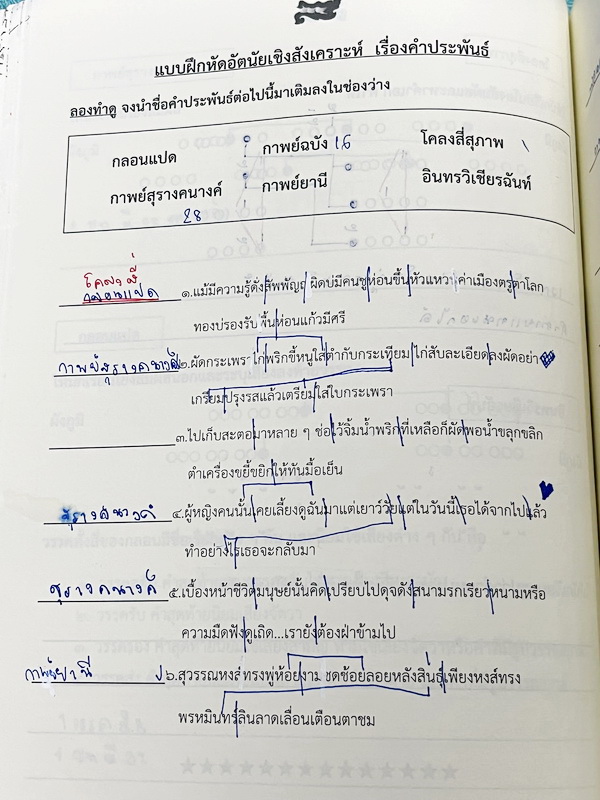 แบบฝึกหัดอัตนัยเชิงสังเคราะห์ เรื่องคำประพันธ์
ลองทำดู จงนำชื่อคำประพันธ์ต่อไปนี้มาเติมลงในช่องว่าง
กลอนแปด กาพย์ฉบัง 16 โคลงสี่สุภาพ
กาพย์สุรางคนางค์ กาพย์ยานี อินทรวิเชียรฉันท์
28
โคลงสี่
กลอนแปด ๑.แม้มีความรู้ดั่งสัพพัญญู ผิดบ่มีคนชูห่อนขึ้นหัวแหวนค่าเมืองตรูตาโลก
ทองบ่รองรับพื้นห่อนแก้วมีศรี
กาพย์สุรางคนางค์ ๒.ผัดกระเพราไก่พริกขี้หนูใส่ตำกับกระเทียม ไก่สับละเอียดลงผัดอย่า
เกรียมปรุงรสแล้วเตรียมใส่ใบกระเพรา
๓.ไปเก็บสะตอมาหลาย ๆ ช่อไว้จิ้มน้ำพริกที่เหลือก็ผัดพอน้ำขลุกขลิก
ตำเครื่องขยี้ขยิกให้ทันมื้อเย็น
สุรางคนางค์ ๔.ผู้หญิงคนนั้นเคยเลี้ยงดูฉันมาแต่เยาว์วัยแต่ในวันนี้เธอได้จากไปแล้ว
ทำอย่างไรเธอจะกลับมา
สุรางคนางค์ ๕.เบื้องหน้าชีวิตมนุษย์นั้นคิดเปรียบไปดุจดังสนามรกเรียวหนามหรือ
ความมืดฟังดูเถิด...เรายังต้องฝ่าข้ามไป
กาพย์ยานี ๖.สุวรรณหงส์ทรงพู่ห้อยงาม ชดช้อยลอยหลังสินธุ์เพียงหงส์ทรง
พรหมินทร์ลินลาดเลื่อนเตือนตาชม